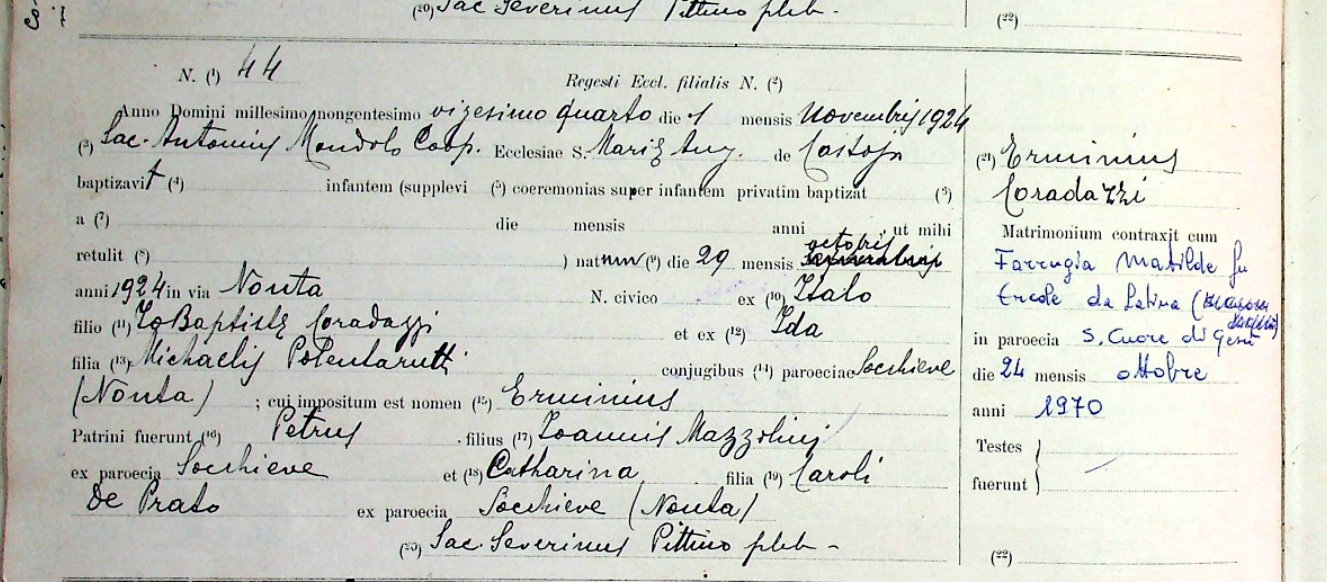 (20) Sac. Severinus Pittino pleb.
(22)
N. (1) 44
Regesti Eccl. filialis N. (2)
Anno Domini millesimo nongentesimo vigesimo quarto die 1 mensis Novembris 1924
(3) Sac. Antonius Mondolo Coop. Ecclesiae S. Mariæ Ang. de
baptizavit (4) infantem (supplevi (5) coeremonias super infantem privatim baptizat (3)
a (7) die mensis anni , ut mihi
retulit (8) ) natum (9) die 29 mensis octobris
anni 1924 in via Nonta N. civico ex (10) Italo
filio (11) Jo Baptistæ Coradazzi et ex (12) Ida
filia (13) Michaelis Polentarutti conjugibus (14) paroeciae Socchieve
(Nonta) ; cui impositum est nomen (15) Erminius
Patrini fuerunt (16) Petrus filius (17) Joannis Mazzolini
ex paroecia Socchieve et (18) Catharina filia (19) Caroli
De Prato ex paroecia Socchieve (Nonta)
(20) Sac. Severinus Pittino pleb.
(21) Erminius
Coradazzi
Matrimonium contraxit cum
Farrugia Matilde fu
Ercole da Latina (
in paroecia S. Cuore di Gesù
die 24 mensis ottobre
anni 1970
Testes
fuerunt
(22)